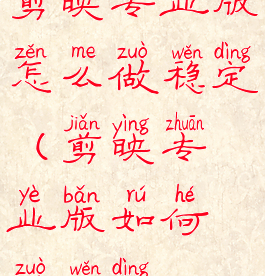 剪映专业版
zěn me zuò wěn dìng
怎么做稳定
jiǎn yìng zhuān
(剪映专
yè bǎn rú hé
业版如何
zuò wěn dìng